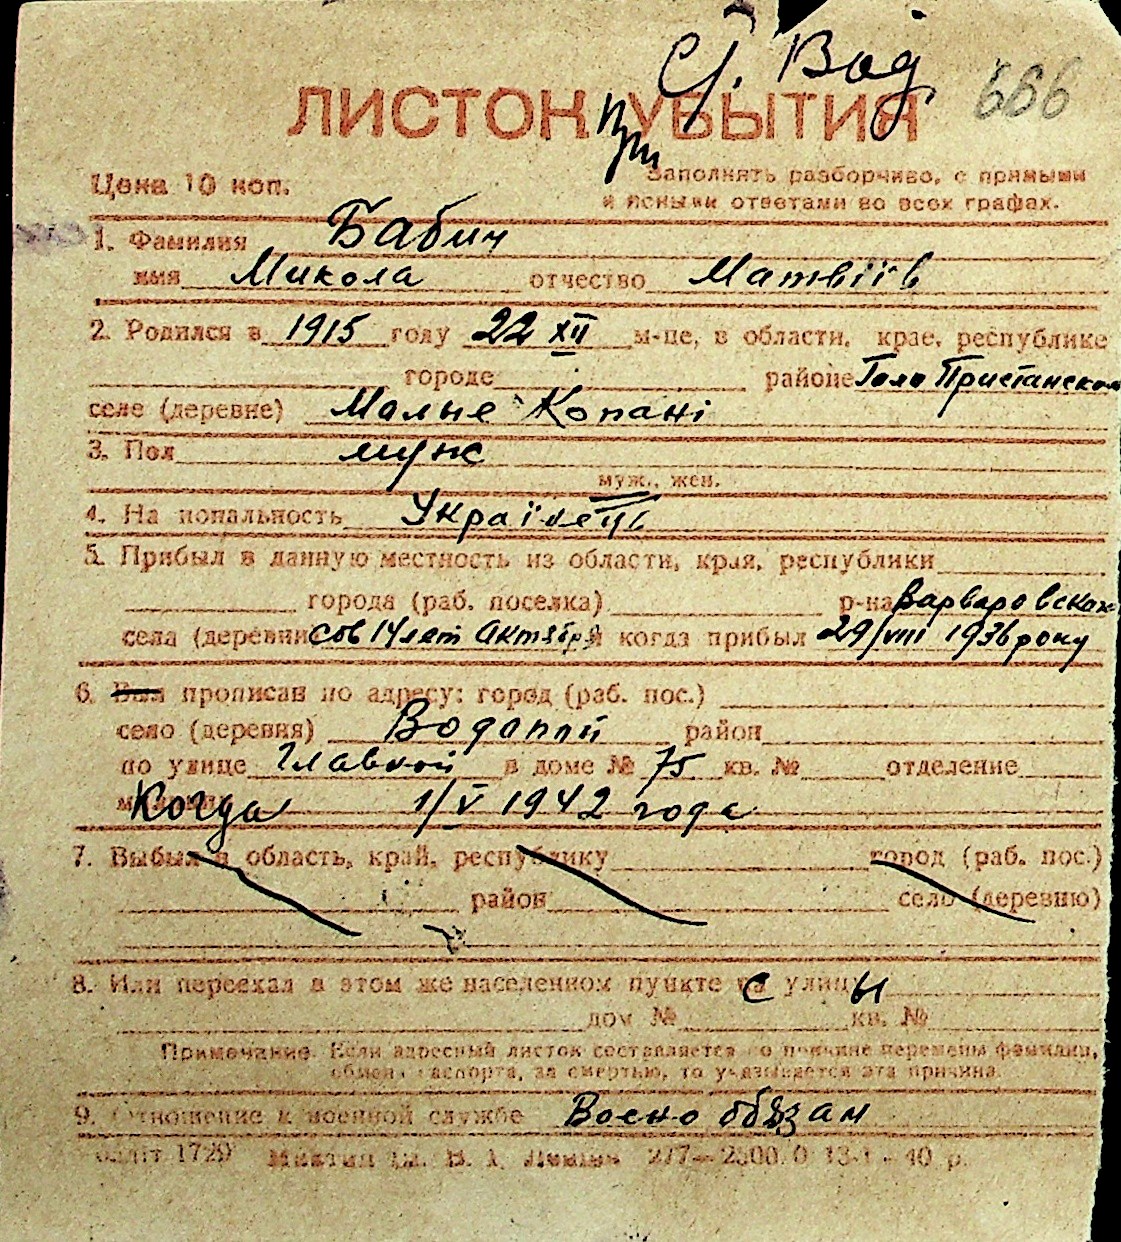 С. Вод
666
ЛИСТОК при УБЫТИЯ
Цена 10 коп.
Заполнять разборчиво, с прямыми
и ясными ответами во всех графах.
1. Фамилия Бабич
имя Микола отчество Матвіїв
2. Родился в 1915 году 22 XII м-це, в области, крае, республике
городе районе Голо Пристанском
селе (деревне) Малые Копані
3. Пол муж
муж., жен.
4. На иональность Україnець
5. Прибыл в данную местность из области, края, республики
города (раб. поселка) р-на Варваровская
села (деревни Сов 14 лет Октября и когда прибыл 29/VIII 1936 року
6. Был прописан по адресу: город (раб. пос.)
село (деревня) Водопой район
по улице Главной в доме № 75 кв. № отделение
Когда 1/V 1942 года
7. Выбыл в область, край, республику город (раб. пос.)
район село (деревню)
8. Или переехал в этом же населенном пункте с улицы
дом № кв. №
Примечание. Если адресный листок составляется по причине перемены фамилии,
обмена паспорта, за смертью, то указывается эта причина.
9. Отношение к военной службе Воено обязан
1729 277—2500.0 13-1 - 40 р.